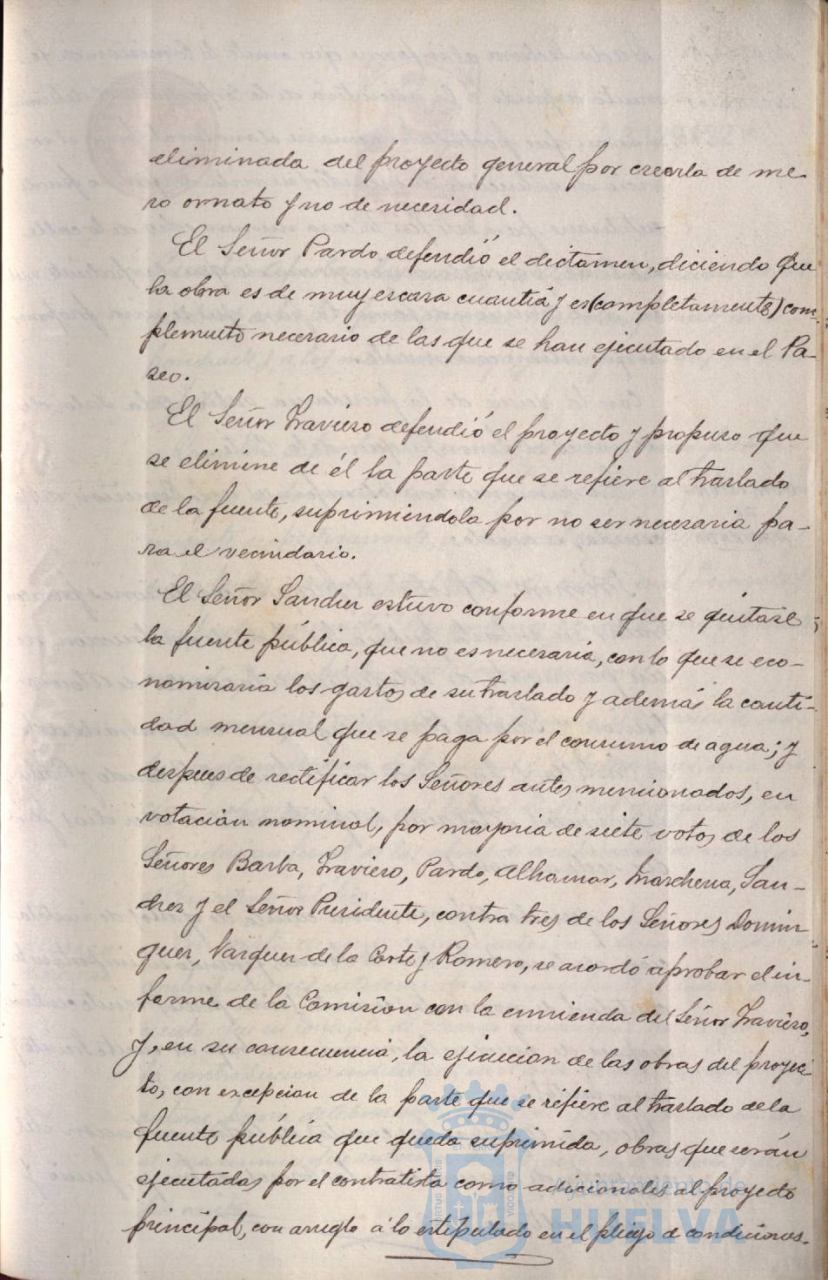 eliminada del proyecto general por creerla de me
ro ornato y no de necesidad.
El Señor Pardo defendió el dictamen, diciendo que
la obra es de muy escasa cuantía y es (completamente) com-
plemento necesario de las que se han ejecutado en el Pa-
seo.
El Señor Travieso defendió el proyecto y propuso que
se elimine de él la parte que se refiere al traslado
de la fuente, suprimiéndola por no ser necesaria pa-
ra el vecindario.
El Señor Sanchez estuvo conforme en que se quitase
la fuente pública, que no es necesaria, con lo que se eco-
nomizaria los gastos de su traslado y además la canti-
dad mensual que se paga por el consumo de agua; y
despues de rectificar los Señores antes mencionados, en
votacion nominal, por mayoria de siete votos de los
Señores Barba, Travieso, Pardo, Alhamar, Marchena, San-
chez y el Señor Presidente, contra tres de los Señores Domin
guez, Vazquez de la Corte y Romero, se acordó aprobar el in-
forme de la Comision con la enmienda del Señor Travieso,
y, en su consecuencia, la ejecucion de las obras del proyec-
to, con excepcion de la parte que se refiere al traslado de la
fuente pública que queda suprimida, obras que serán
ejecutadas por el contratista como adicionales al proyecto
principal, con arreglo á lo estipulado en el pliego de condiciones.
HUELVA